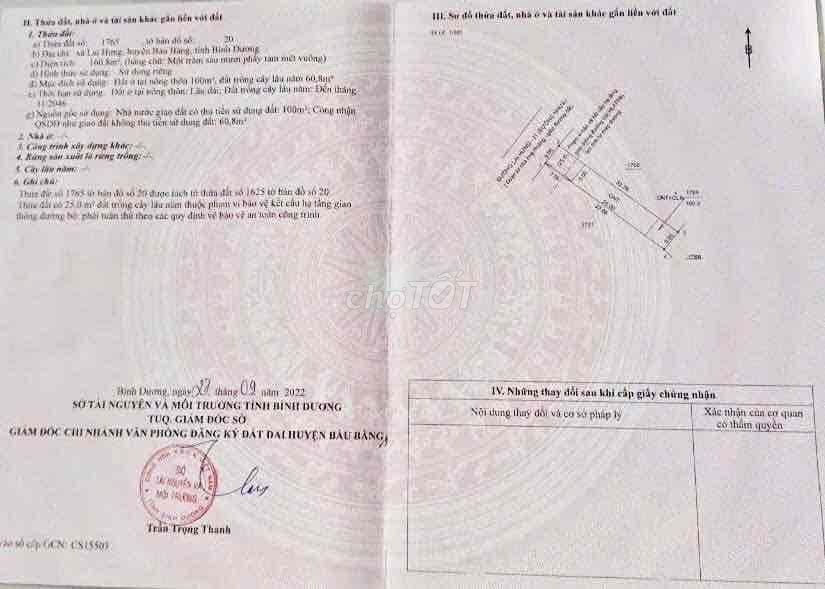 II. Thửa đất, nhà ở và tài sản khác gắn liền với đất
1. Thửa đất:
a) Thửa đất số: 1765 tờ bản đồ số: 20
b) Địa chỉ: xã Lai Hưng, huyện Bàu Bàng, tỉnh Bình Dương
c) Diện tích: 160.8m², (bằng chữ: Một trăm sáu mươi phẩy tám mét vuông)
d) Hình thức sử dụng: Sử dụng riêng
đ) Mục đích sử dụng: Đất ở tại nông thôn 100m²; đất trồng cây lâu năm 60,8m²
e) Thời hạn sử dụng: Đất ở tại nông thôn: Lâu dài; Đất trồng cây lâu năm: Đến tháng
11/2046
g) Nguồn gốc sử dụng: Nhà nước giao đất có thu tiền sử dụng đất: 100m²; Công nhận
QSDĐ như giao đất không thu tiền sử dụng đất: 60,8m²
2. Nhà ở: -/-
3. Công trình xây dựng khác: -/-
4. Rừng sản xuất là rừng trồng: -/-
5. Cây lâu năm: -/-
6. Ghi chú:
Thửa đất số 1765 tờ bản đồ số 20 được tách từ thửa đất số 1625 tờ bản đồ số 20
Thửa đất có 25.0 m² đất trồng cây lâu năm thuộc phạm vi bảo vệ kết cấu hạ tầng giao
thông đường bộ: phải tuân thủ theo các quy định về bảo vệ an toàn công trình
Bình Dương, ngày 27 tháng 09 năm 2022
SỞ TÀI NGUYÊN VÀ MÔI TRƯỜNG TỈNH BÌNH DƯƠNG
TUQ. GIÁM ĐỐC SỞ
GIÁM ĐỐC CHI NHÁNH VĂN PHÒNG ĐĂNG KÝ ĐẤT ĐAI HUYỆN BÀU BÀNG
SỞ
TÀI NGUYÊN VÀ
MÔI TRƯỜNG
TỈNH BÌNH DƯƠNG
Trần Trọng Thanh
vào sổ cấp GCN: CS15503
III. Sơ đồ thửa đất, nhà ở và tài sản khác gắn liền với đất
B
ONT
ONT+CLN
160.8
5.00
chợTỐT
IV. Những thay đổi sau khi cấp giấy chứng nhận
Nội dung thay đổi và cơ sở pháp lý
Xác nhận của cơ quan
có thẩm quyền